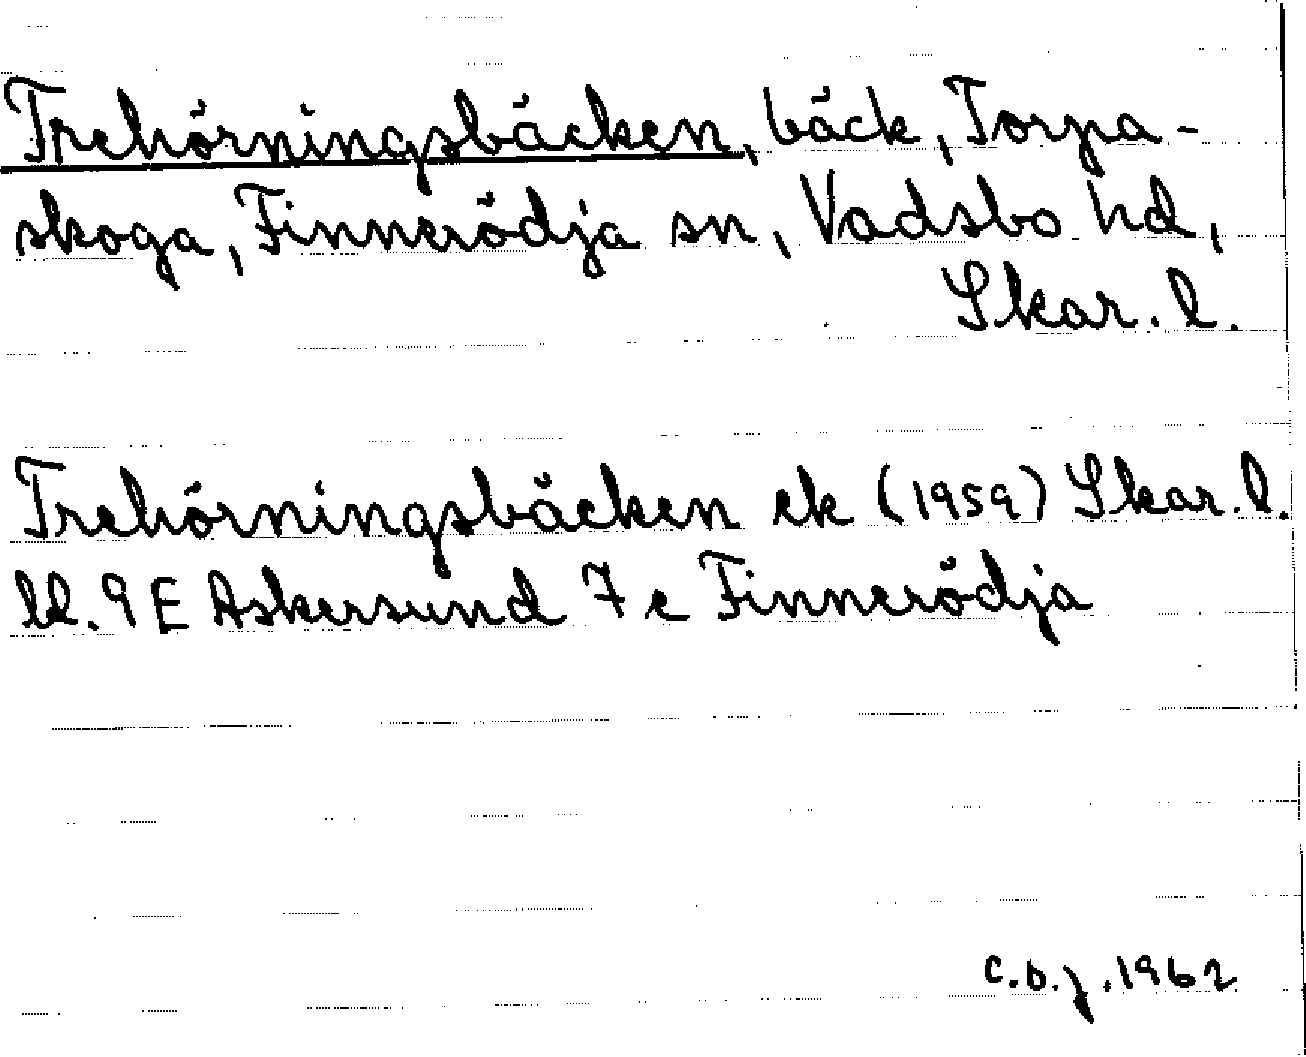 Trehörningsbäcken, bäck, Torpa-
skoga, Finnerödja sn, Vadsbo hd,
Skar. l.
Trehörningsbäcken ek (1959) Skar. l.
bl. 9E Askersund 7e Finnerödja
C.O.J. 1962